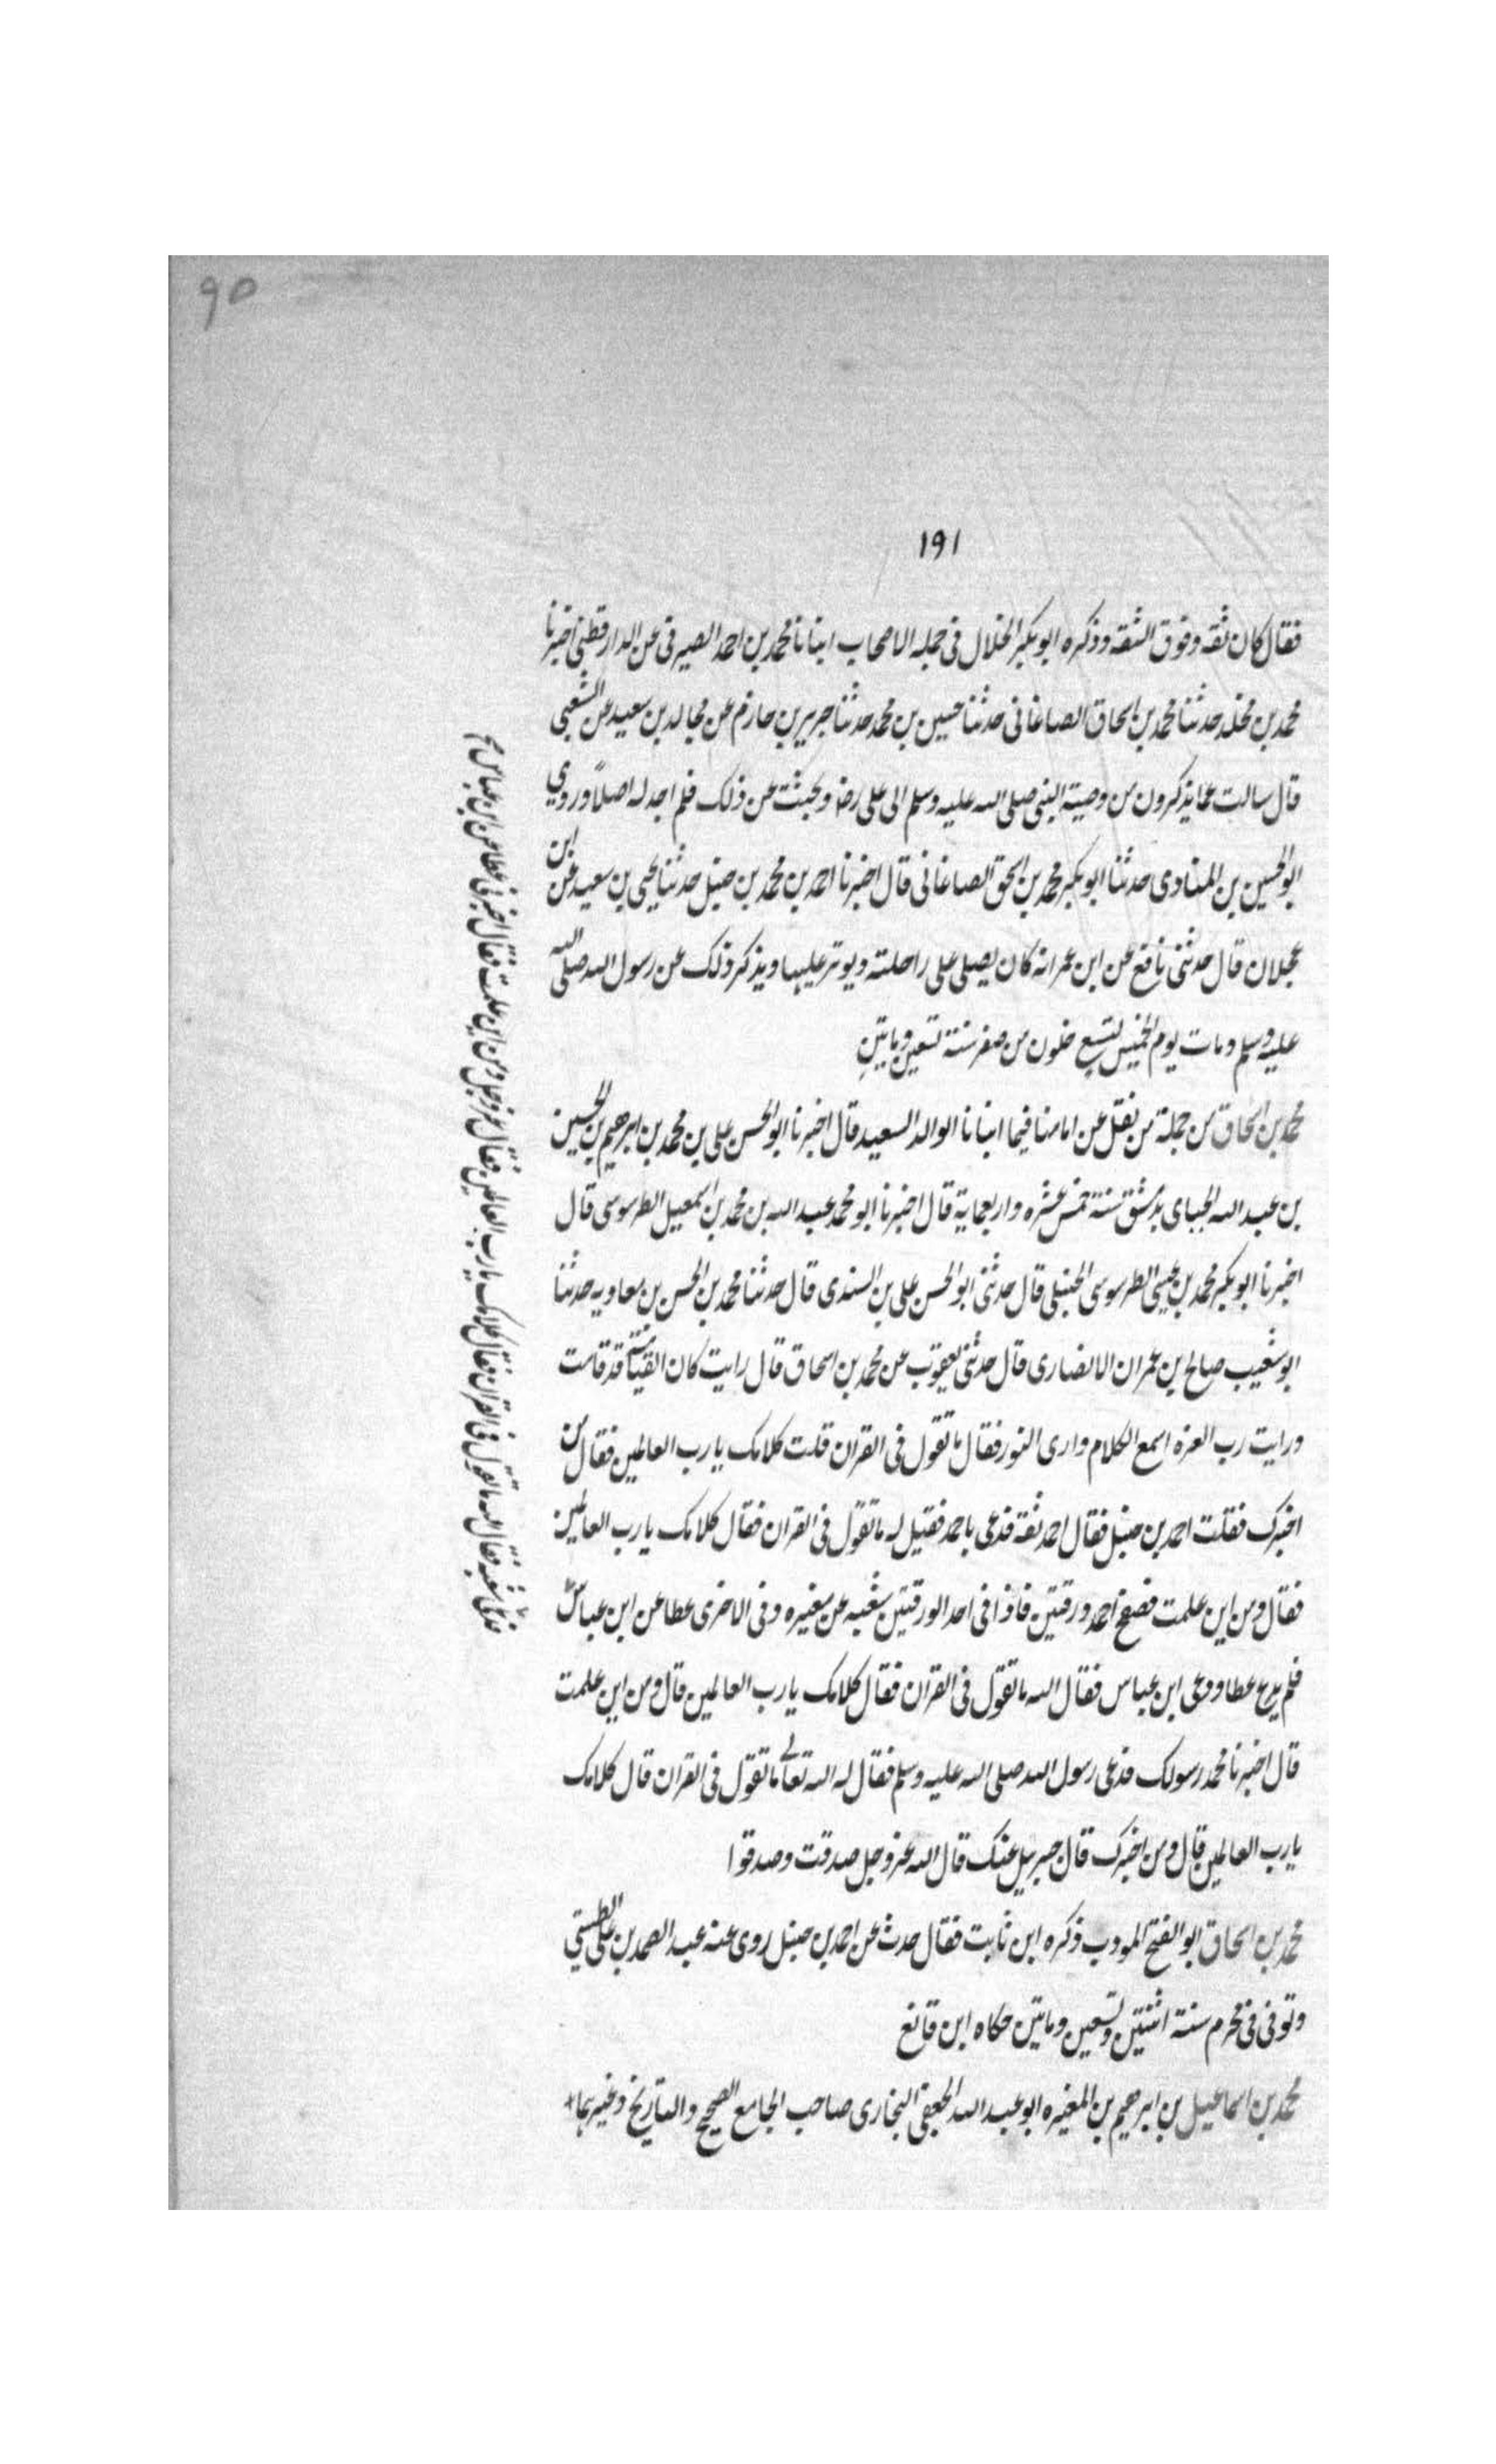 ٩٥
١٩١
فقال كان ثقة وفوق الثقه وذكره ابو بكر الخلال فى جمله الاصحاب انبانا محمد بن احمد الصيرفى عن الدارقطنى اخبرنا
محمد بن مخلد حدثنا محمد بن اسحاق الصاغانى حدثنا حسين بن محمد حدثنا جرير بن حازم عن مجالد بن سعيد عن الشعبى
قال سالت عما يذكرون من وصية النبى صلى الله عليه وسلم الى على رضه وبحثت عن ذلك فلم اجد له اصلاً وروي
ابو الحسين بن المنادى حدثنا ابو بكر محمد بن اسحق الصاغانى قال اخبرنا احمد بن محمد بن حنبل حدثنا يحيى بن سعيد عن ابن
عجلان قال حدثنى نافع عن ابن عمر انه كان يصلى على راحلته ويوتر عليها ويذكر ذلك عن رسول الله صلى الله
عليه وسلم ومات يوم الخميس لتسع خلون من صفر سنة تسعين وماتين
محمد بن اسحاق من جملة من نقل عن امامنا فيما انبانا الوالد السعيد قال اخبرنا ابو الحسن على بن محمد بن ابرهيم بن الحسين
بن عبد الله الجباى بدمشق سنة خمس عشره واربعماية قال اخبرنا ابو محمد عبد الله بن محمد بن اسمعيل الطرسوسى قال
اخبرنا ابو بكر محمد بن عيسى الطرسوسى الحنبلى قال حدثنى ابو الحسن على بن السندى قال حدثنا محمد بن الحسن بن معاويه حدثنا
ابو شعيب صالح بن عمران الانصارى قال حدثنى يعقوب عن محمد بن اسحاق قال رايت كان القيامة قد قامت
ورايت رب العزه اسمع الكلام وارى النور فقال ما تقول فى القران قلت كلامك يا رب العالمين فقال من
اخبرك فقلت احمد بن حنبل فقال احمد ثقة فدعى باحمد فقيل له ما تقول فى القران فقال كلامك يا رب العالمين
فقال ومن اين علمت فصفح احمد ورقتين فاذا فى احد الورقتين شعبه عن مغيره وفى الاخرى عطا عن ابن عباس
فلم يدع عطا ودعى ابن عباس فقال الله ما تقول فى القران فقال كلامك يا رب العالمين قال ومن اين علمت
قال اخبرنا محمد رسولك فدعى رسول الله صلى الله عليه وسلم فقال له الله تعالى ما تقول فى القران قال كلامك
يا رب العالمين قال ومن اخبرك قال جبريل عنك قال الله عز وجل صدقت وصدقوا
محمد بن اسحاق ابو الفتح المودب ذكره ابن ثابت فقال حدث عن احمد بن حنبل روى عنه عبد الصمد بن على الطستى
وتوفى فى محرم سنة اثنتين وتسعين وماتين حكاه ابن قانع
محمد بن اسماعيل بن ابرهيم بن المغيره ابو عبد الله الجعفى البخارى صاحب الجامع الصحيح والتاريخ وغيرهما
شعبه فقال الله ما تقول فى القران فقال كلامك يا رب العالمين فقال عز وجل ومن اين علمت فقال اخبرنى عطا عن ابن عباس